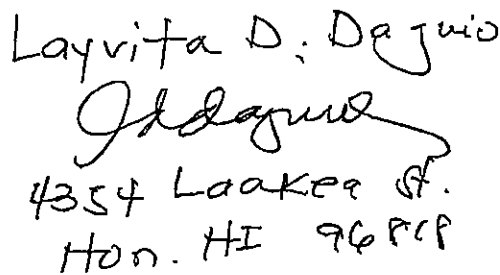 Layvita D. Daguio
4354 Laakea St.
Hon. HI 96818